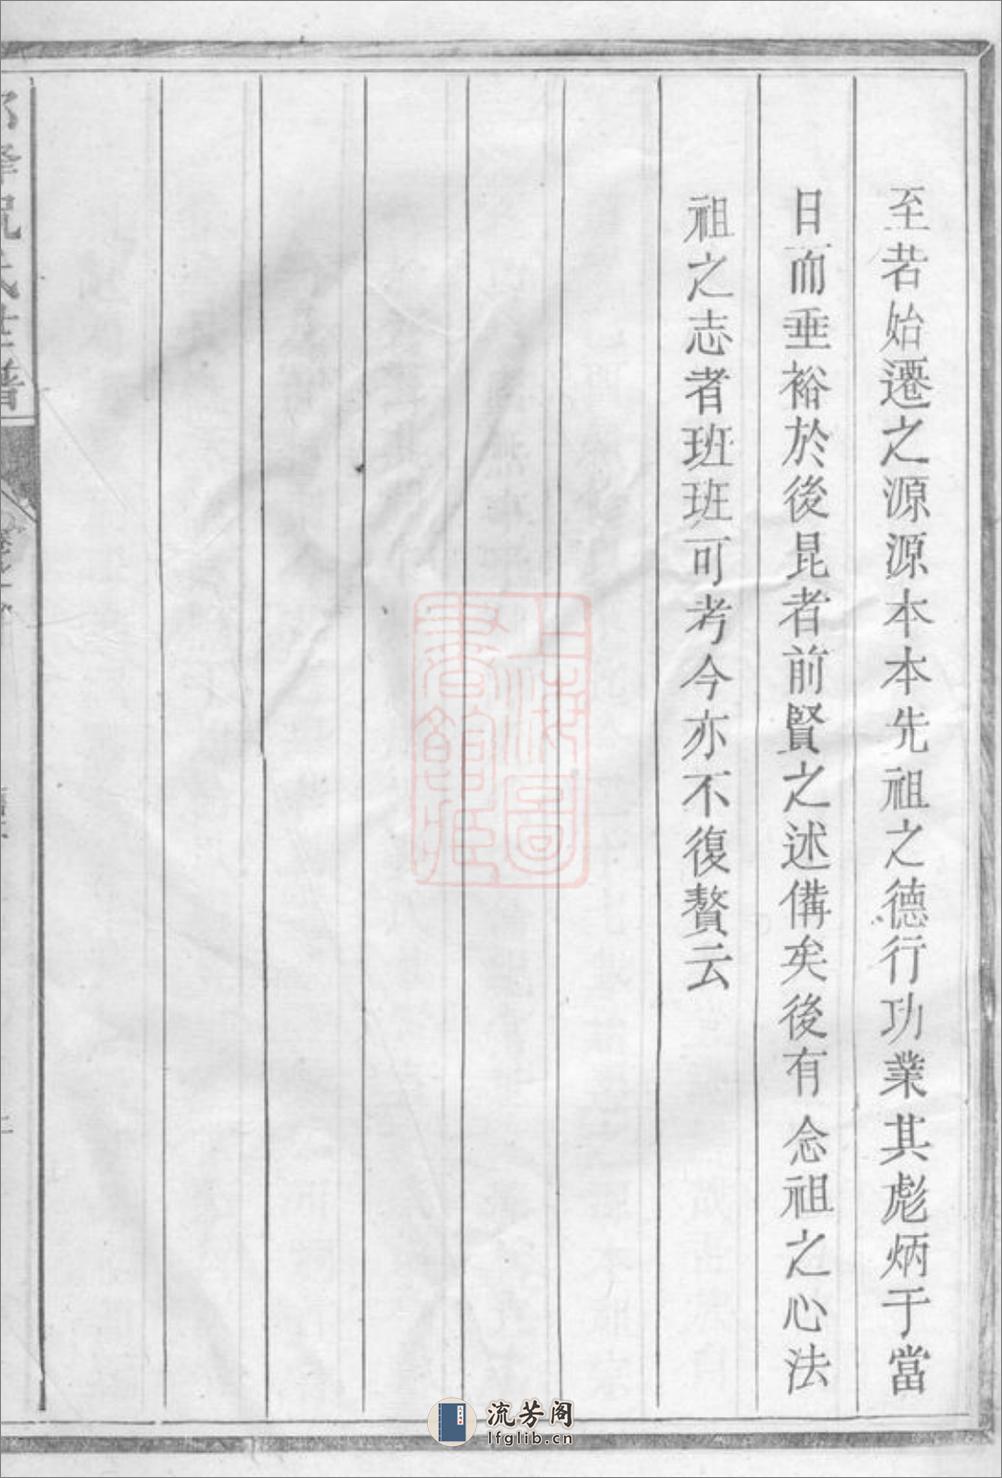 至若始遷之源源本本先祖之德行功業其彪炳于當
日而垂裕於後昆者前賢之述備矣後有念祖之心法
祖之志者班班可考今亦不復贅云
氏
譜
上海圖
書館藏
流芳阁
lfglib.cn